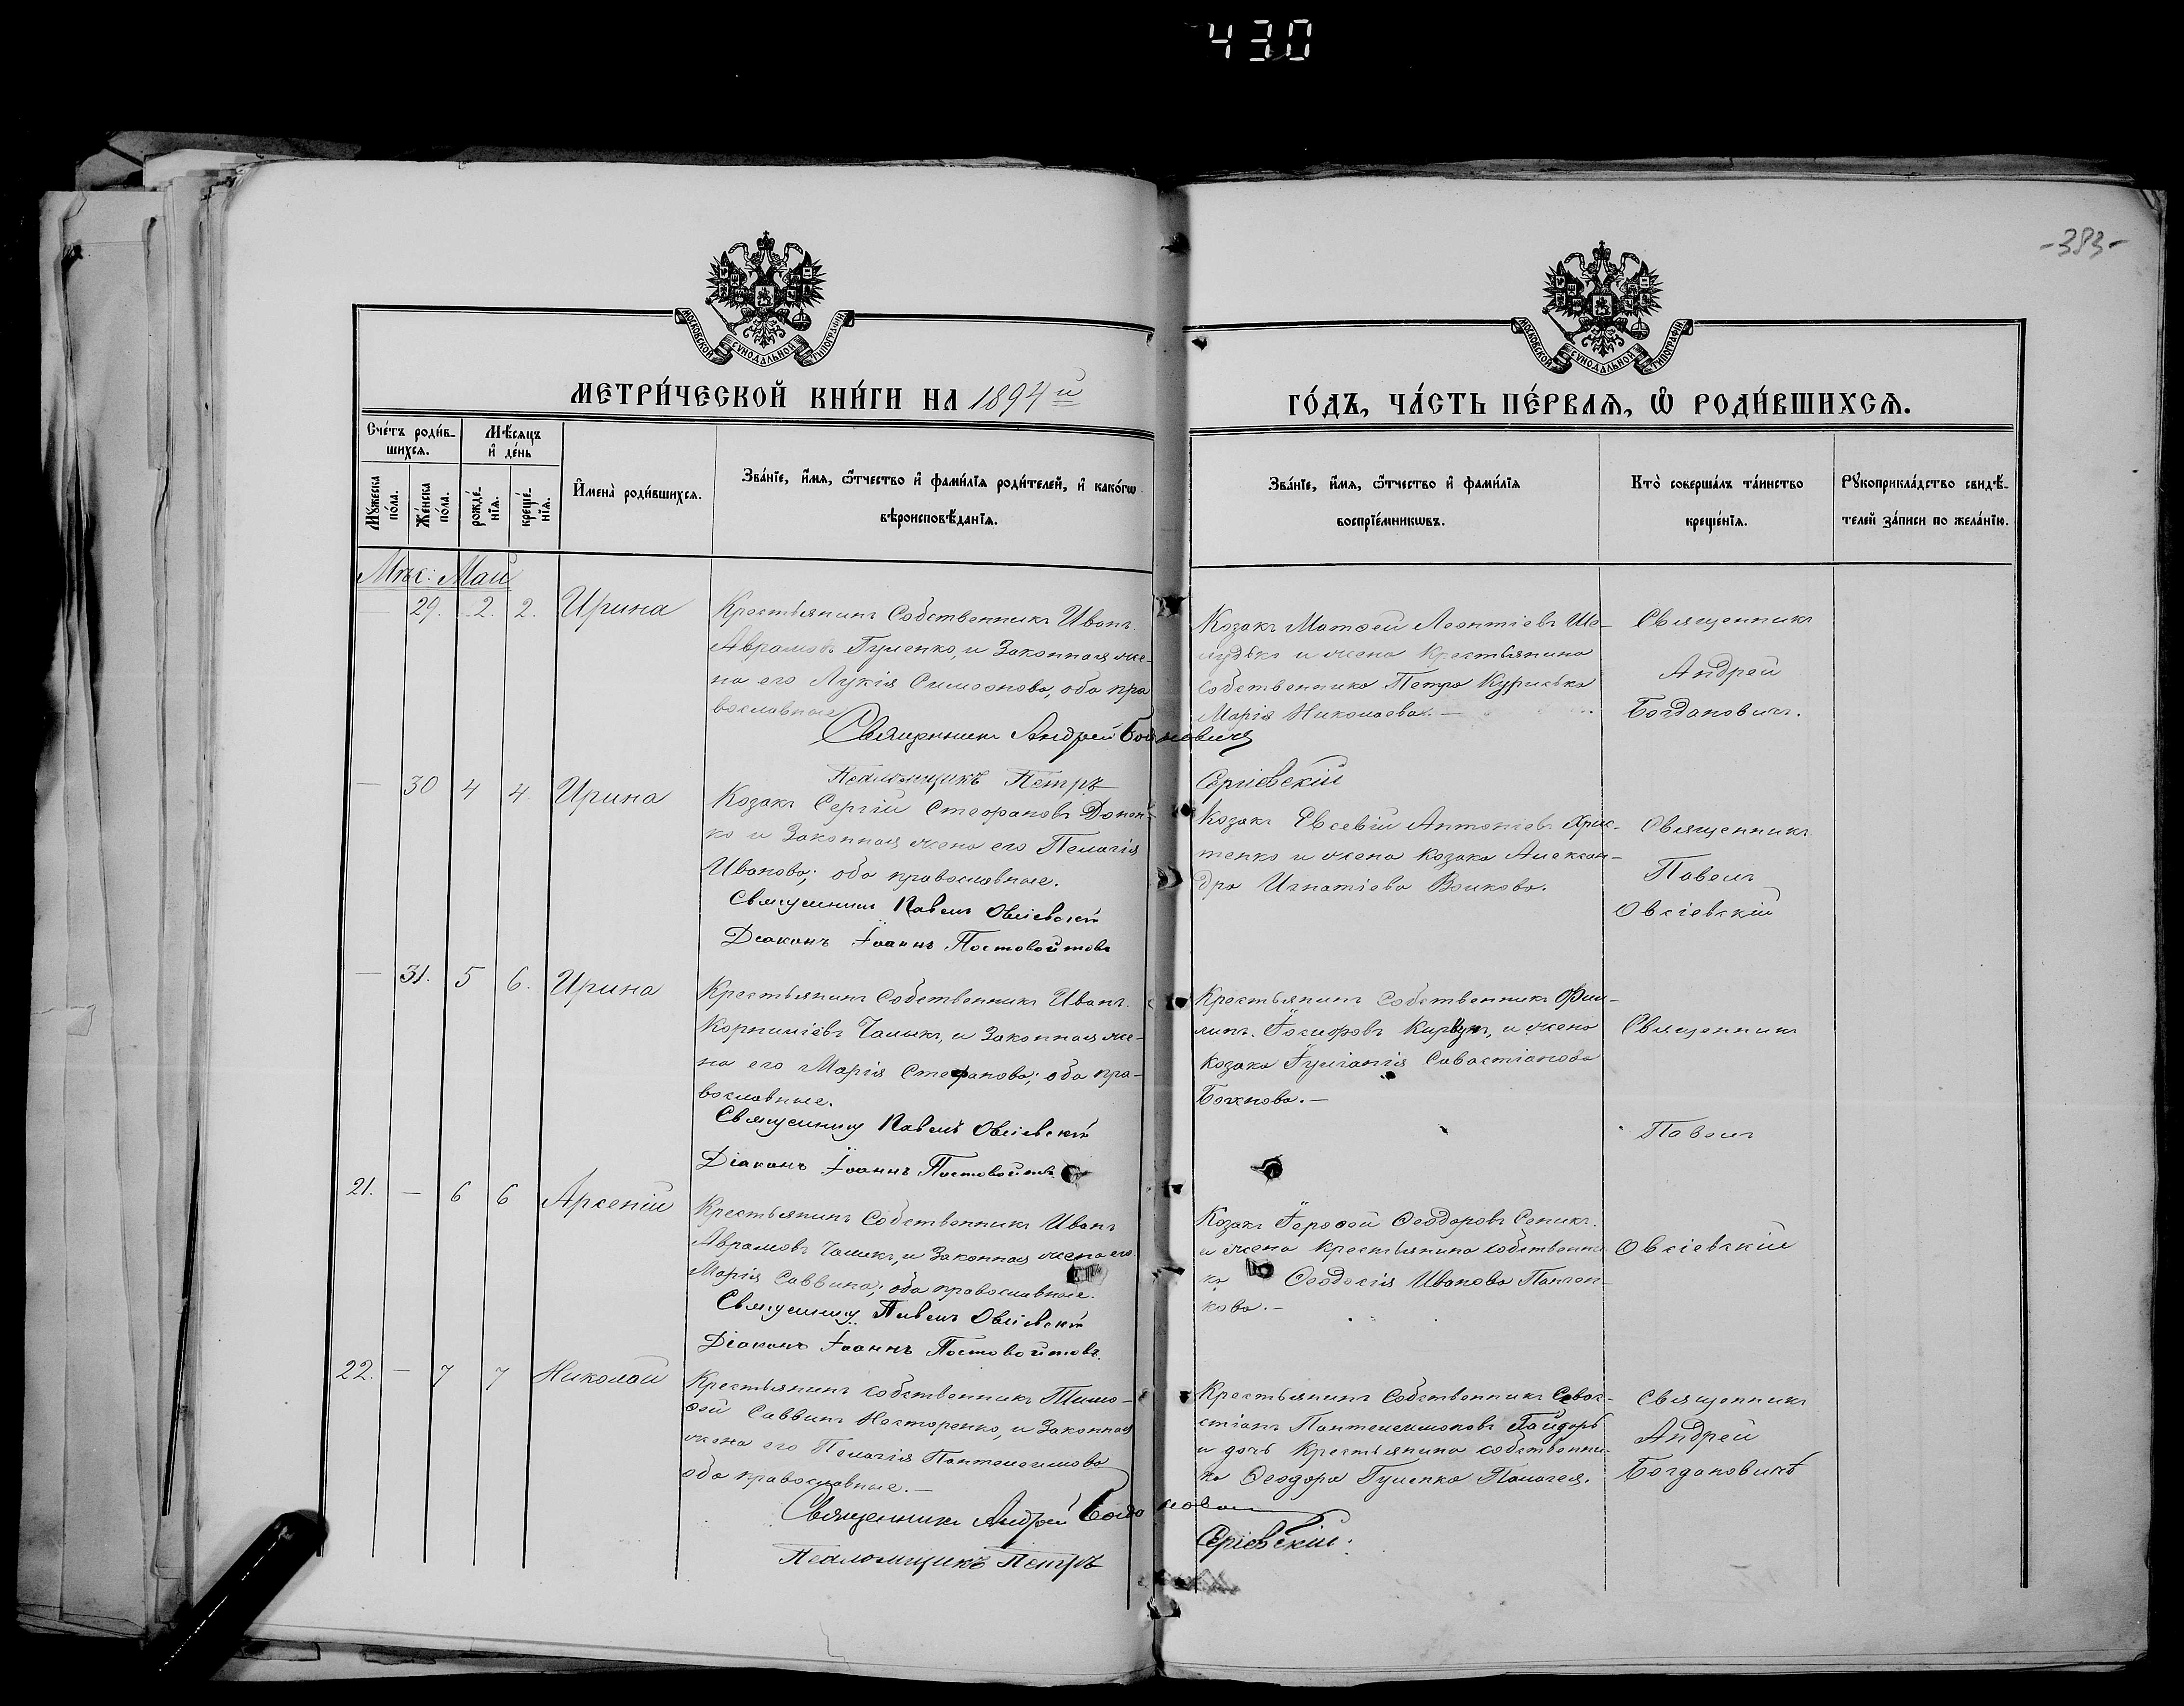 430
-383-
МОСКОВСКОЙ СѴНОДАЛЬНОЙ ТИПОГРАФІИ
МОСКОВСКОЙ СѴНОДАЛЬНОЙ ТИПОГРАФІИ
МЕТРИ́ЧЕСКОЙ КНИ́ГИ НА 1894й
ГО́ДЪ, ЧА́СТЬ ПЕ́РВАѦ, Ѡ҆ РОДИ́ВШИХСѦ.
Сче́тъ роди́в-
шихсѧ.
Мѣ́сѧцъ
и҆ де́нь
Мꙋ́жеска
по́ла.
Же́нска
по́ла.
рожде́-
нїѧ.
креще́-
нїѧ.
И҆мена̀ роди́вшихсѧ.
Зва́нїе, и҆́мѧ, ѻ҆́тчество и҆ фами́лїѧ роди́телей, и҆ како́гѡ
вѣроисповѣ́данїѧ.
Зва́нїе, и҆́мѧ, ѻ҆́тчество и҆ фами́лїѧ
воспрїе́мникѡвъ.
Кто̀ соверша́лъ та́инство
креще́нїѧ.
Рꙋкоприкла́дство свидѣ́-
телей за́писи по жела́нїю.
Мѣс: Май
— 29. 2. 2. Ирина
Крестьянинъ Собственникъ Иванъ
Аврамовъ Гуленко, и Законная же-
на его Лукія Симеонова, оба пра
вославные
Священникъ Андрей Богдановичъ
Псаломщикъ Петръ Сергіевскій
Козакъ Матѳей Леонтіевъ Ше-
лудько и жена Крестьянина
Собственника Петра Курисько
Марія Николаева. —
Священникъ
Андрей
Богдановичъ.
— 30 4 4. Ирина
Козакъ Сергій Стефановъ Донон-
ко и Законная жена его Пелагія
Иванова; оба православные.
Священникъ Павелъ Овсіевскій
Діаконъ Іоаннъ Постовойтовъ
Козакъ Евсевій Антоніевъ Хрис-
тенко и жена Козака Алексан-
дра Игнатіева Волкова.
Священникъ
Павелъ
Овсіевскій
— 31. 5 6. Ирина
Крестьянинъ Собственникъ Иванъ
Корниліевъ Чалыкъ, и Законная же-
на его Марія Стефанова; оба пра-
вославные.
Священникъ Павелъ Овсіевскій
Діаконъ Іоаннъ Постовойтовъ
Крестьянинъ Собственникъ Фи-
липъ Іосифовъ и жена
Козака Іуліанія Савастіанова
Священникъ
Павелъ
Овсіевскій
21. — 6 6 Арсеній
Крестьянинъ Собственникъ Иванъ
Аврамовъ Чалыкъ, и Законная жена его
Марія Саввина; оба православные.
Священникъ Павелъ Овсіевскій
Діаконъ Іоаннъ Постовойтовъ.
Козакъ Іероѳей Ѳеодоровъ Сепикъ
и жена Крестьянина Собственни
ка Ѳеодосія Иванова Панчен-
кова. —
22. — 7 7 Николай
Крестьянинъ Собственникъ Тимо-
ѳей Саввинъ Несторенко, и Законная
жена его Пелагія Пантелеимова
оба православные. —
Священникъ Андрей Богдановичъ
Псаломщикъ Петръ Сергіевскій.
Крестьянинъ Собственникъ Севас-
стіанъ Пантелеимоновъ Гайдоръ
и дочь Крестьянина собственни-
ка Ѳеодора Гуленка Пелагея.
Священникъ
Андрей
Богдановичъ